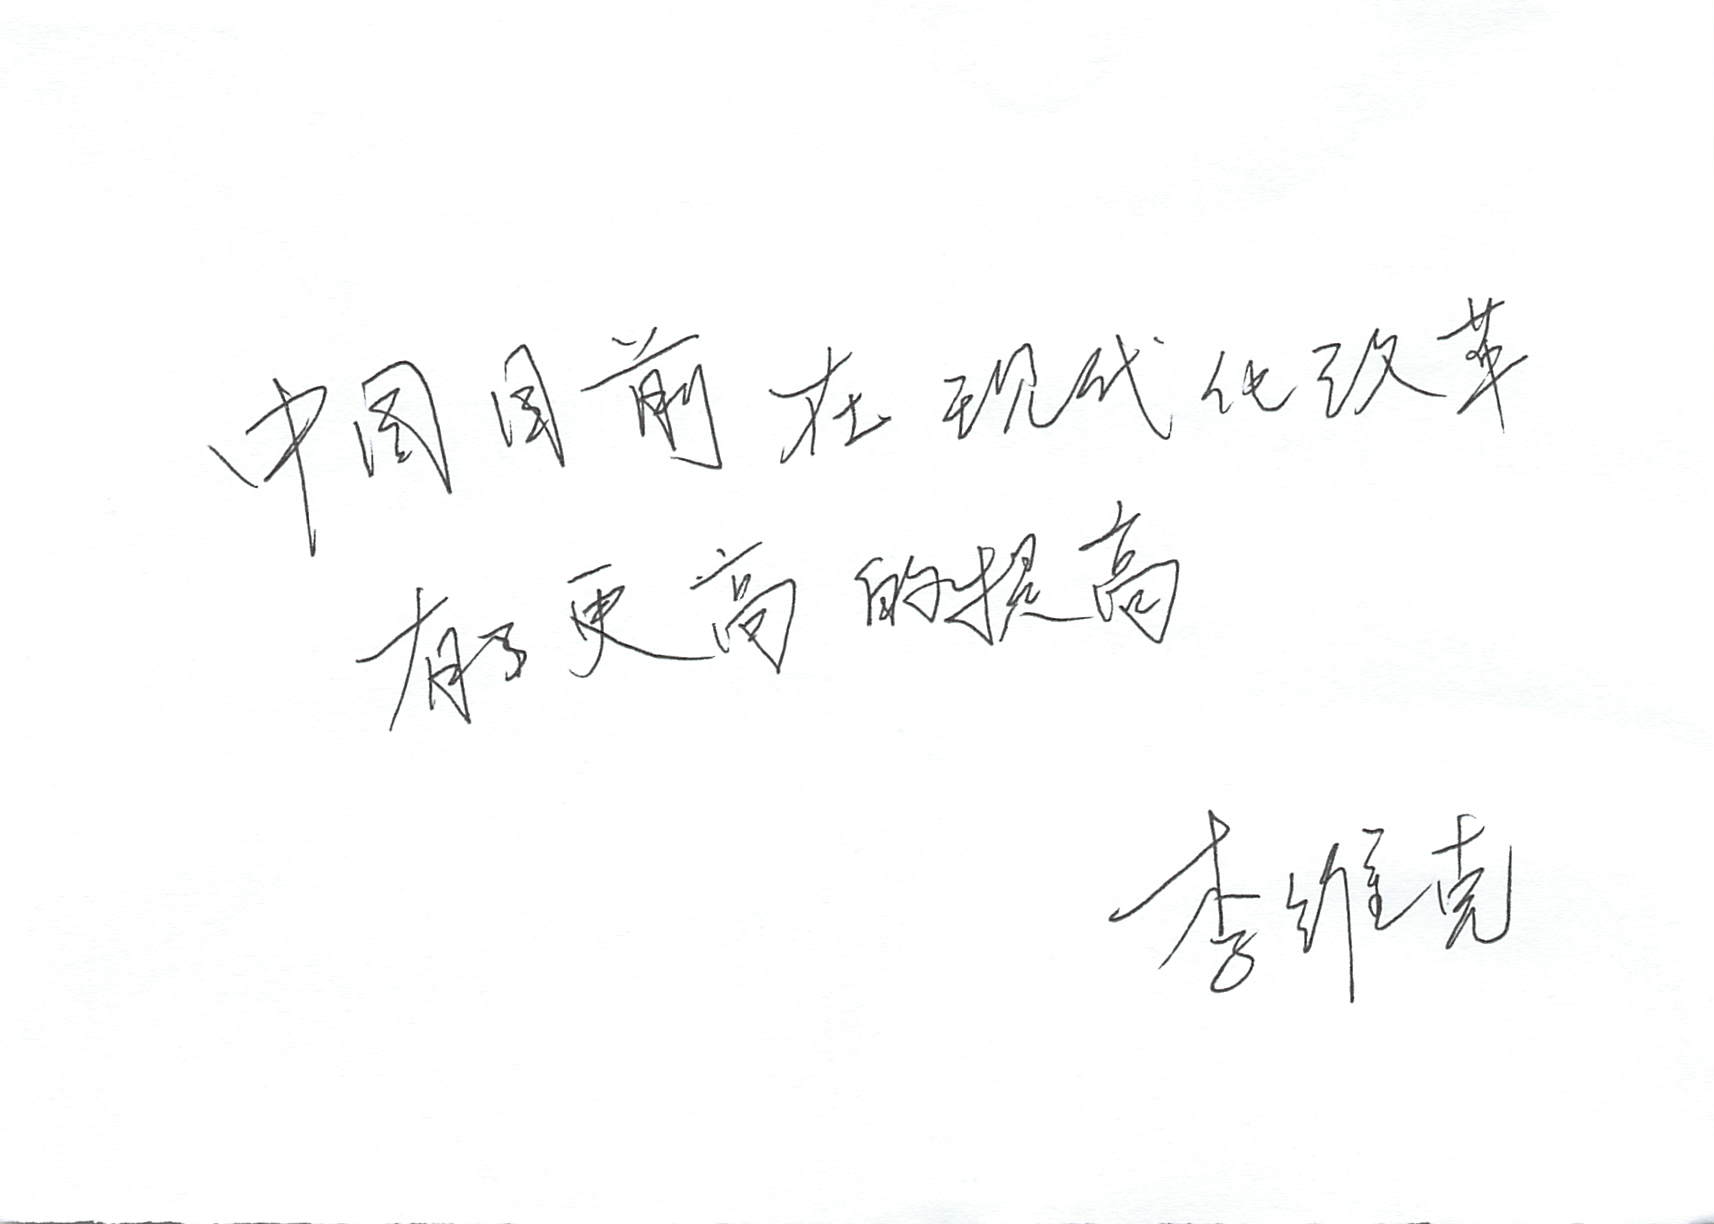 中国目前在现代化改革
有了更高的提高
李维克